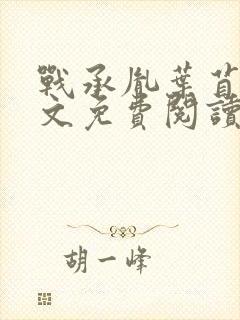 戰承胤葉苜
文免費閱讀
胡一峰